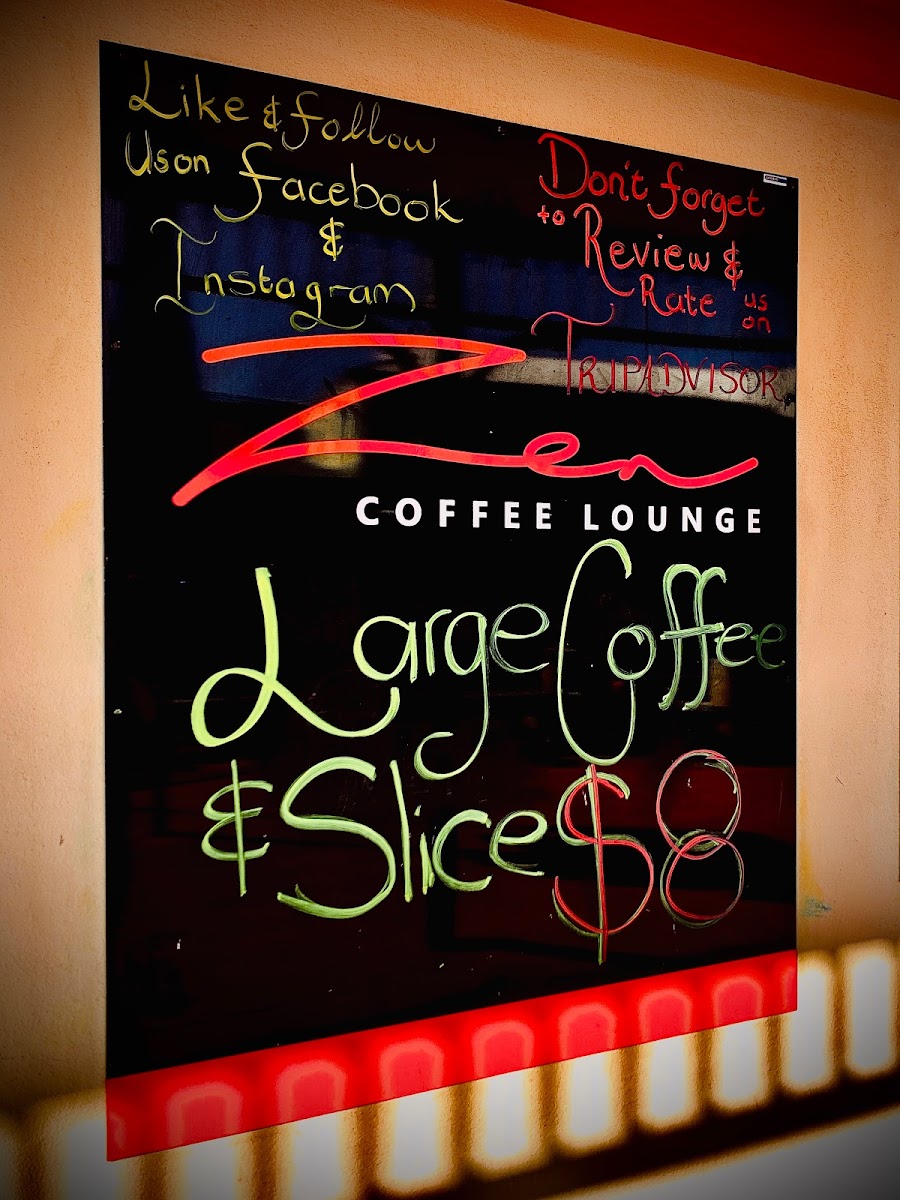 Like & follow
Us on facebook
&
Instagram
Don't forget
to Review &
Rate us on
TRIPADVISOR
Zen
COFFEE LOUNGE
Large Coffee
& Slice $8